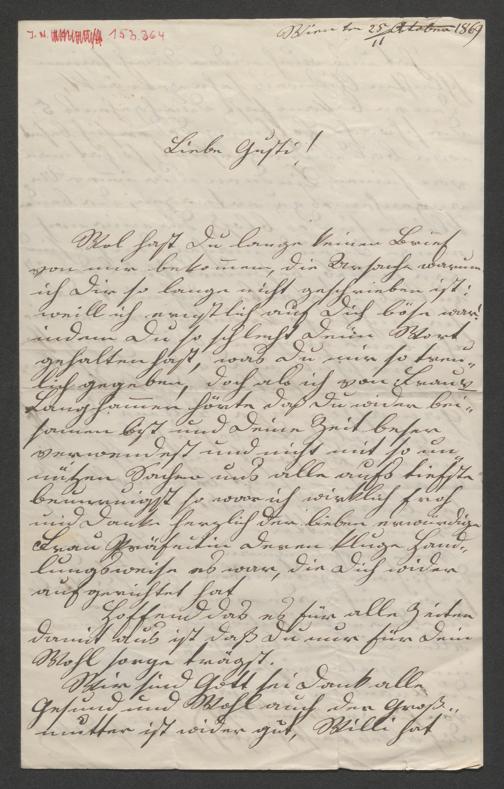 J. N. 153.364
Wien den 25/11 Oktober 1869
Liebe Gusti!
Wol hast Du lange keinen Brief
von mir bekommen, die Ursache warum
ich Dir so lange nicht geschrieben ist:
weill ich ernstlich auf Dich böse war!
indem Du so schlecht dein Wort
gehalten hast, was Du mir so treu-
lich gegeben, doch als ich von Frau
Langhammer hörte daß Du wider bei-
samen bist und Deine Zeit beßer
verwendest und nicht mit so un
nützen Sachen uns alle aufs tiefste
beunruhigst so war ich wirklich froh
und Danke herzlich der lieben erwürdige
Frau Präfektin deren kluge Hand-
lungsweise es war, die Dich wider
aufgerichtet hat
Hoffend das es für alle Zeiten
damit aus ist daß Du nur für Dein
Wohl sorge trägst.
Wir sind Gott sei Dank alle
Gesund und Wohl auch der Groß-
mutter ist wider gut, Willi hat